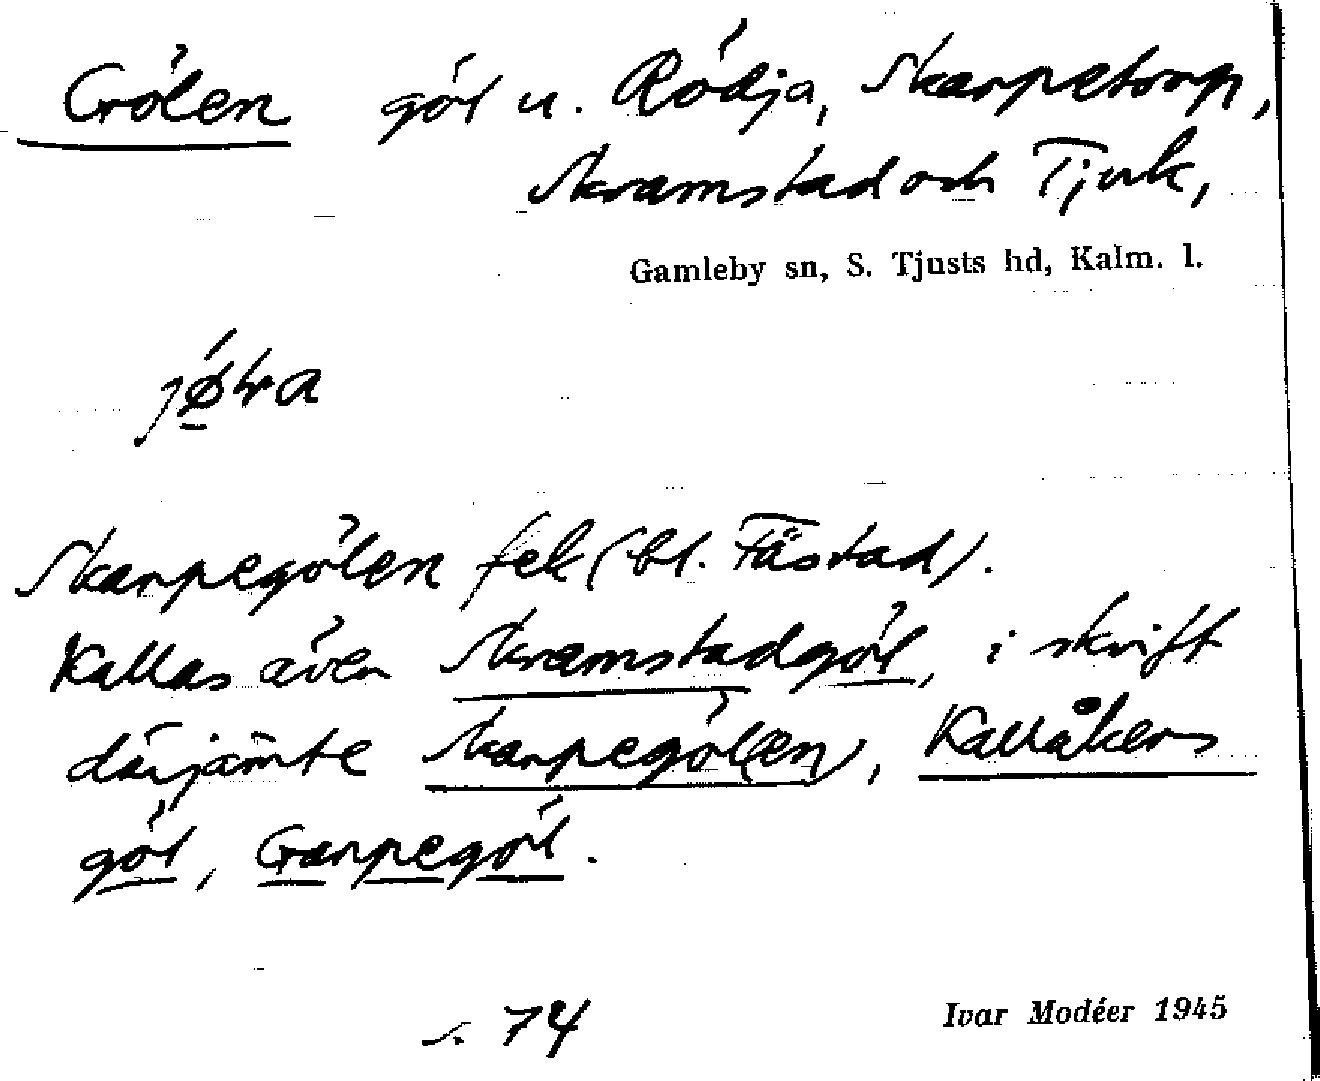 Gölen göl u. Rödja, Skarpetorp,
Skramstad och Tjuk,
Gamleby sn, S. Tjusts hd, Kalm. l.
Skarpegölen fek (bl. Fästad).
Kallas även Skramstadgöl, i skrift
därjämte Skarpegöl(en), Kallåkers
göl, Garpegöl.
s. 74
Ivar Modéer 1945